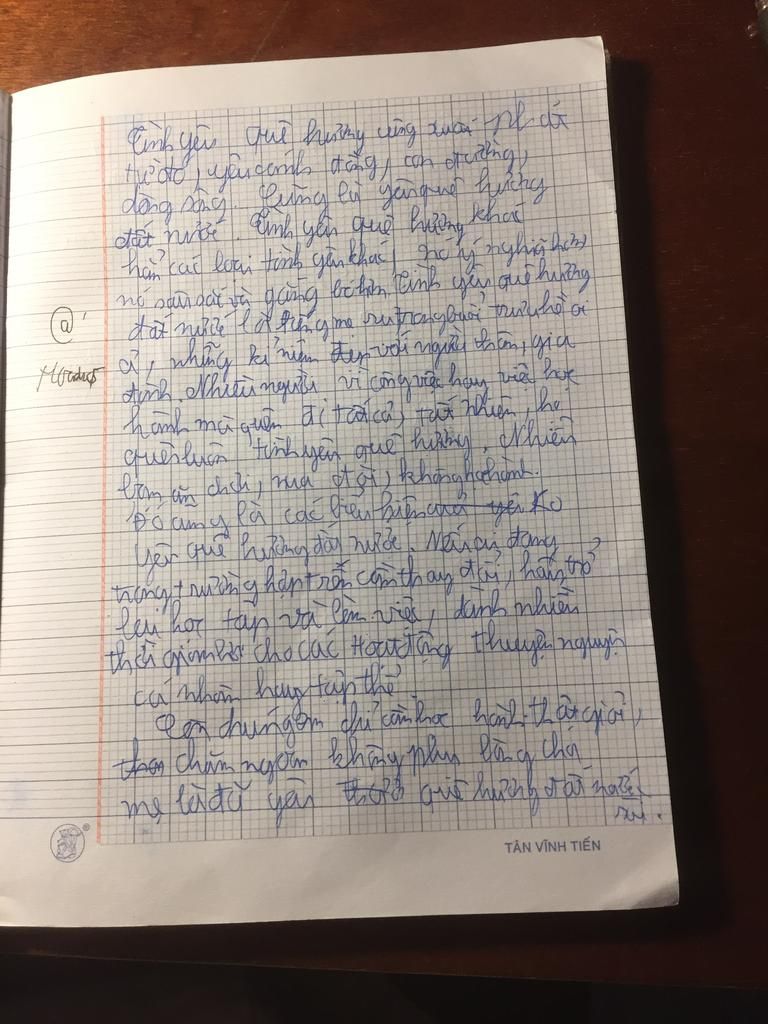 Tình yêu quê hương cũng xuất
từ đó, yêu cánh đồng, con đường,
dòng sông. Cũng là yêu quê hương
đất nước. Tình yêu quê hương khác
hẳn các loại tình yêu khác, nó ý nghĩa hơn,
nó sâu sắc và gắng bó hơn. Tình yêu quê hương
đất nước là tiếng mẹ ru trong buổi trưa hè oi
ả, những kỉ niệm đẹp với người thân, gia
đình. Nhiều người vì công việc hay việc học
hành mà quên đi tất cả, tất nhiên, họ
quên luôn tình yêu quê hương. Nhiều
làm ăn chơi, đời, không học hành.
Đó cũng là các biểu hiện của yêu Ko
yêu quê hương đất nước. Nếu ai đang
trong trường hợp trên cần thay đổi, hãy trở
lại học tập và làm việc, dành nhiều
thời gian cho các hoạt động thuyện nguyện
cá nhân hay tập thể.
Còn chúng em chỉ cần học hành thật giỏi,
chăm ngoan không phụ lòng cha
mẹ là đủ yêu quê hương đất nước
rồi.
@
TÂN VĨNH TIẾN